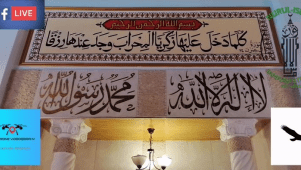 LIVE
بسم الله الرحمن الرحيم
كلما دخل عليها زكريا المحراب وجد عندها رزقا
لا إله إلا الله
محمد رسول الله